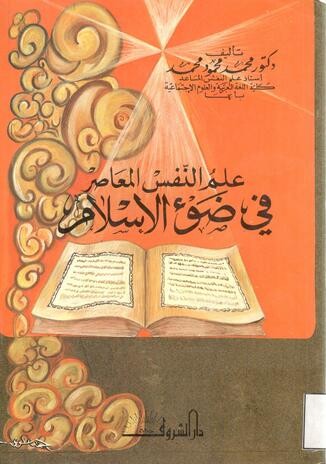 تأليف
دكتور محمد محمود محمد
أستاذ علم النفس المساعد
كلية اللغة العربية والعلوم الاجتماعية
بأبها
علم النفس المعاصر
في ضوء الإسلام
دار الشروق
جدة